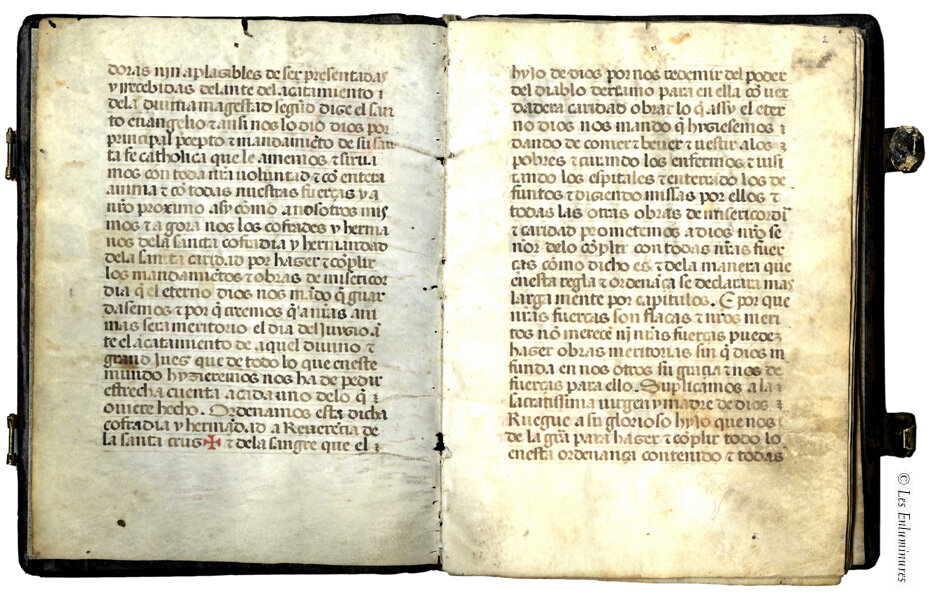 doras nin aplasibles de ser presentadas
y rrecebidas delante del acatamiento ⁊
dela diuina magestad segũd dize el san
to euangelio ⁊ ansi nos lo dio dios por
principal p̃cepto ⁊ mandamiẽto de su san
ta fe catholica que le amemos ⁊ sirua
mos con toda nr̃a voluntad ⁊ cõ entera
anima ⁊ cõ todas nuestras fuerças y a
nr̃o proximo asy como a nosotros mis
mos ⁊ agora nos los cofrades y herma
nos dela sancta cofradia y hermandad
dela santa caridad por hazer ⁊ cõplir
los mandamiẽtos ⁊ obras de misericor
dia q̃ el eterno dios nos mãdo q̃ guar
dasemos ⁊ por q̃ creemos q̃ a nr̃as ani
mas sera meritorio el dia del Juyzio ã
te el acatamiento de aquel diuino ⁊
grand Juez que de todo lo que eneste
mundo hyzieremos nos ha de pedir
estrecha cuenta a cada uno delo q̃
ouiere hecho. Ordenamos esta dicha
cofradia y hermãdad a Reuerẽcia de
la santa cruz ✠ ⁊ dela sangre que el ⁊
2
hyjo de dios por nos redemir del poder
del diablo derramo para en ella cõ uer
dadera caridad obrar lo q̃ assy el eter
no dios nos mando q̃ hyziesemos ⁊
dando de comer ⁊ beuer ⁊ uestir a los ⁊
pobres ⁊ curando los enfermos ⁊ uisi
tando los espitales ⁊ enterrãdo los de
funtos ⁊ diziendo missas por ellos ⁊
todas las otras obras de misericordia
⁊ caridad prometemos a dios nr̃o se
ñor delo cõplir con todas nr̃as fuer
ças cõmo dicho es ⁊ dela manera que
enesta regla ⁊ ordenãça se declarara mas
larga mente por capitulos. E por que
nr̃as fuerças son flacas ⁊ nr̃os meri
tos nõ merecẽ ni nr̃as fuerças puedeẽ
hazer obras meritorias sin q̃ dios in
funda en nos otros su gracia ⁊ nos de
fuerças para ello. Suplicamos a la ⁊
sacratissima uirgen y madre de dios ⁊
Ruegue a su glorioso hyjo que nos
de la grã para hazer ⁊ cõplir todo lo
enesta ordenança contenido ⁊ todas
© Les Enluminures